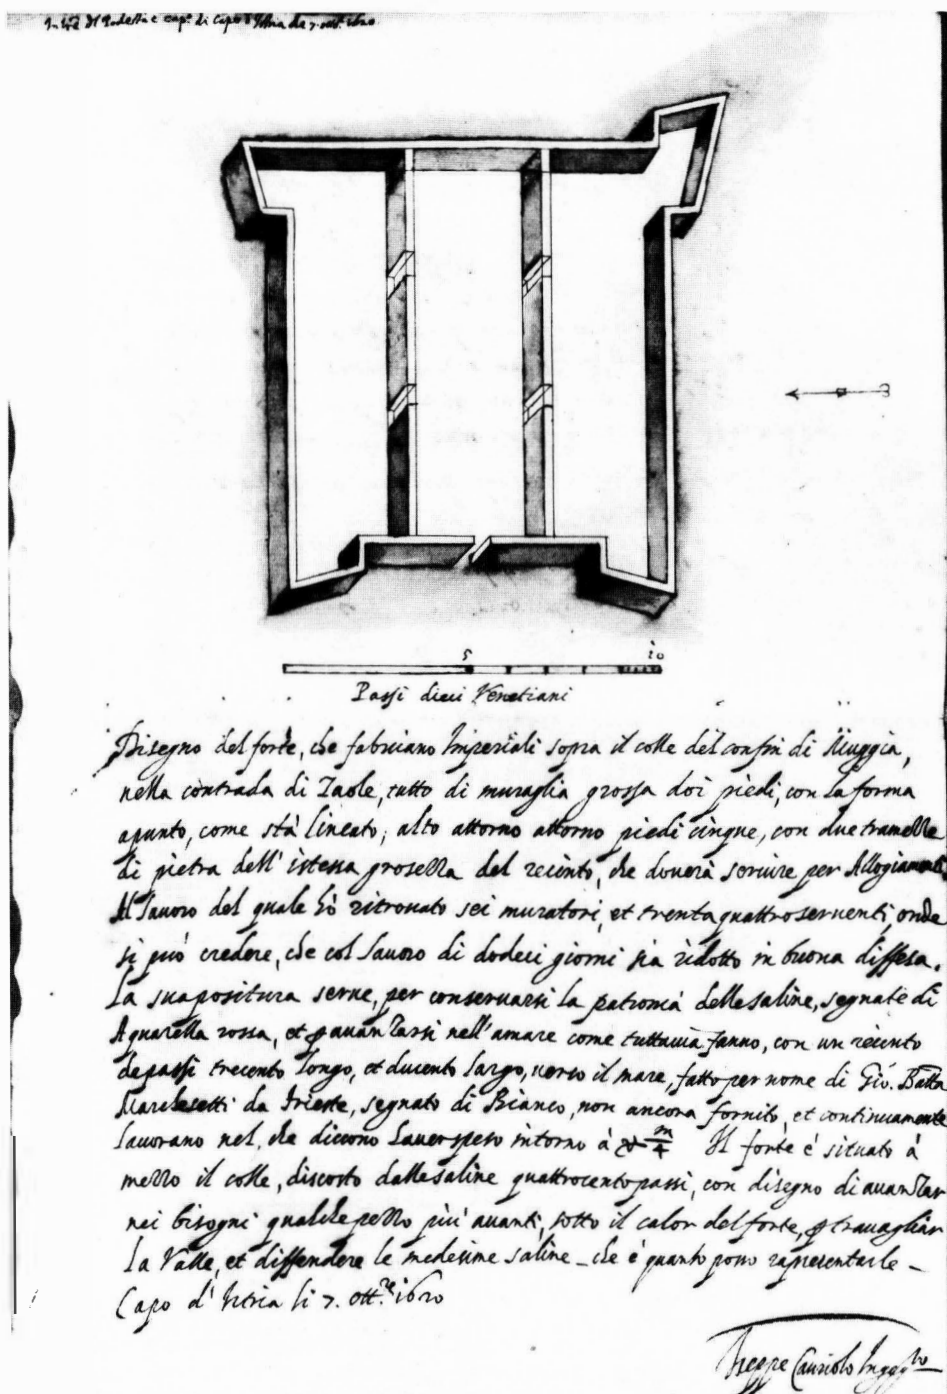 In L.ra Del Podestà e cap.o di Capo d'Istria de 7. ott.e 1620
5 10
Passi dieci Venetiani
Disegno del forte, che fabricano Imperiali sopra il colle del confin di Muggia,
nella contrada di Zaole, tutto di muraglia grossa doi piedi, con la forma
apunto, come stà lineato, alto attorno attorno piedi cinque, con due tramelle
di pietra dell'istessa grosezza del recinto, che doverà servire per Allogiamenti.
Al lavoro del quale hò ritrovato sei muratori, et trenta quattro serventi, onde
si può credere, che col lavoro di dodeci giorni sia ridotto in buona diffesa.
La sua positura serve, per conservarsi la patronia delle saline, segnate di
Aquarella rossa, et p avanzarsi nell'amare come tuttavia fanno, con un recinto
de passi trecento longo, et ducento largo, verso il mare, fatto per nome di Gio. Batta
Marchesetti da Trieste, segnato di Bianco, non ancora fornito, et continuamente
lavorano nel, che dicono haver speso intorno à m/4 Il forte è situato à
mezzo il colle, discosto dalle saline quattrocento passi, con disegno di avanzar
nei bisogni qualche pezzo più avanti, sotto il calor del forte, p travagliar
la Valle, et diffendere le medesime saline - che è quanto posso rapresentarle -
Capo d'Istria li 7. ott.re 1620
Iseppe Cauriolo Ingeg.ro